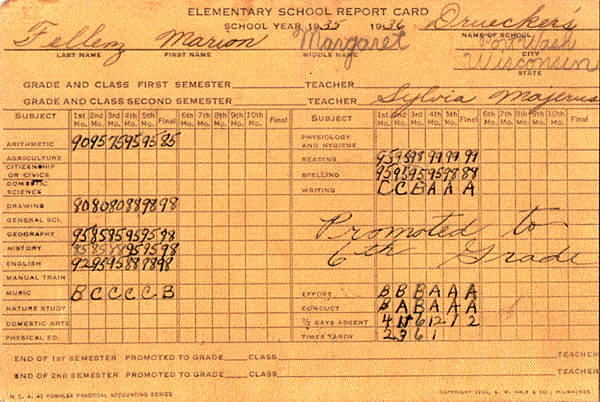 ELEMENTARY SCHOOL REPORT CARD
SCHOOL YEAR 1935 1936 Druecker's
NAME OF SCHOOL
Fellenz Marion Margaret Port Wash
LAST NAME FIRST NAME MIDDLE NAME CITY
Wisconsin
STATE
GRADE AND CLASS FIRST SEMESTER TEACHER
GRADE AND CLASS SECOND SEMESTER TEACHER Sylvia Majerus
SUBJECT 1st Mo. 2nd Mo. 3rd Mo. 4th Mo. 5th Mo. Final 6th Mo. 7th Mo. 8th Mo. 9th Mo. 10th Mo. Final
ARITHMETIC 90 95 75 95 95 85
AGRICULTURE
CITIZENSHIP OR CIVICS
DOMESTIC SCIENCE
DRAWING 80 80 80 88 98 98
GENERAL SCI.
GEOGRAPHY 95 85 95 95 95 98
HISTORY 85 85 88 95 95 98
ENGLISH 92 95 95 88 98 98
MANUAL TRAIN
MUSIC B C C C C B
NATURE STUDY
DOMESTIC ARTS
PHYSICAL ED.
SUBJECT 1st Mo. 2nd Mo. 3rd Mo. 4th Mo. 5th Mo. Final 6th Mo. 7th Mo. 8th Mo. 9th Mo. 10th Mo. Final
PHYSIOLOGY AND HYGIENE
READING 95 95 98 99 99 99
SPELLING 95 95 95 95 98 88
WRITING C C B A A A
Promoted to
6th Grade
EFFORT B B B A A A
CONDUCT B A B A A A
½ DAYS ABSENT 4 11 6 12 1 2
TIMES TARDY 2 3 6 1
END OF 1ST SEMESTER PROMOTED TO GRADE CLASS TEACHER
END OF 2ND SEMESTER PROMOTED TO GRADE CLASS TEACHER
FOWLER'S PRACTICAL ACCOUNTING SERIES
COPYRIGHT E. W. HALE & CO., MILWAUKEE